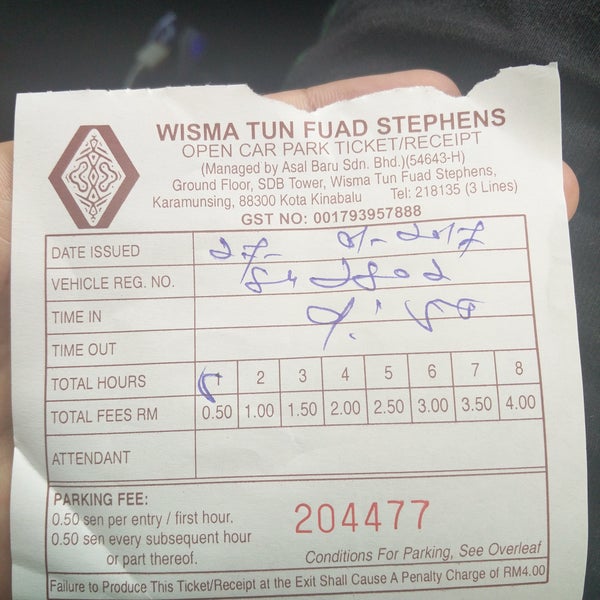 WISMA TUN FUAD STEPHENS
OPEN CAR PARK TICKET/RECEIPT
(Managed by Asal Baru Sdn. Bhd.)(54643-H)
Ground Floor, SDB Tower, Wisma Tun Fuad Stephens,
Karamunsing, 88300 Kota Kinabalu Tel: 218135 (3 Lines)
GST NO: 001793957888
DATE ISSUED 27-
VEHICLE REG. NO. 2802
TIME IN
TIME OUT
TOTAL HOURS 1 2 3 4 5 6 7 8
TOTAL FEES RM 0.50 1.00 1.50 2.00 2.50 3.00 3.50 4.00
ATTENDANT
PARKING FEE:
0.50 sen per entry / first hour.
0.50 sen every subsequent hour
or part thereof.
204477
Conditions For Parking, See Overleaf
Failure to Produce This Ticket/Receipt at the Exit Shall Cause A Penalty Charge of RM4.00